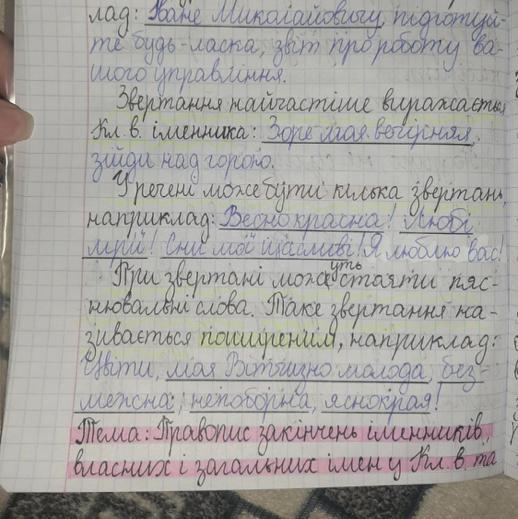 лад: Іване Миколайовичу, підготуй-
те будь-ласка, звіт про роботу ва-
шого управління.
Звертання найчастіше виражається
Кл. в. іменника: Зоре моя вечірняя,
зійди над горою.
У речені може бути кілька звертань,
наприклад: Весно красна! Любі
мрії! Сни мої щасливі! Я люблю вас!
При звертані можуть стояти пяс-
нювальні слова. Таке звертання на-
зивається поширеним, наприклад:
Цвіти, моя Вітчизно молода, без-
межна, непоборна, яснокрая!
Тема: Правопис закінчень іменників,
власних і загальних імен у Кл. в. та